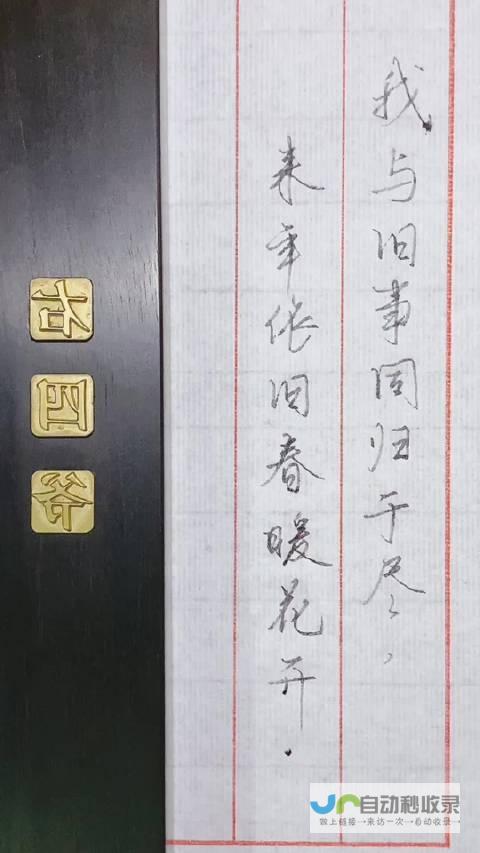 我与旧事同归于尽，
来年依旧春暖花开.
自动秒收录
做上链接→来访一次→自动收录